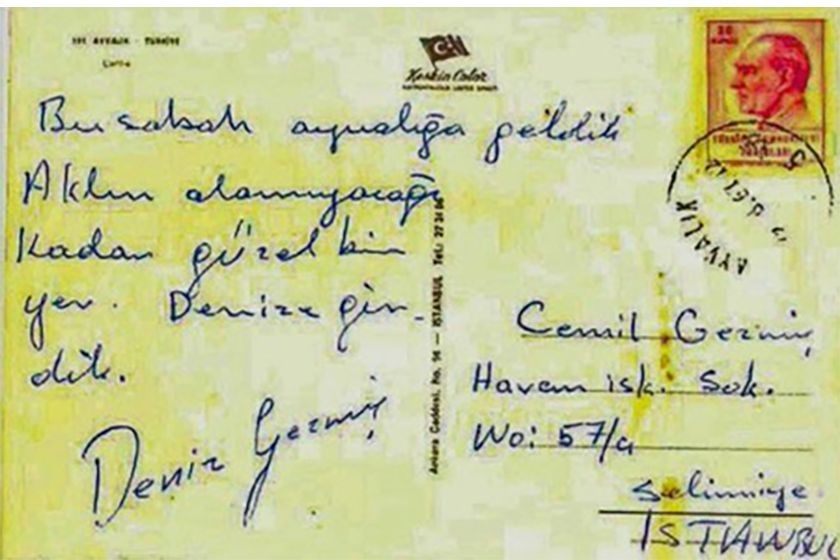 AYVALIK - TÜRKİYE
Keskin Color
Bu sabah ayvalığa geldik
Aklın alamıyacağı
Kadar güzel bir
yer. Denize gir-
dik.
Deniz Gezmiş
Ankara Caddesi, No. 98 — İSTANBUL Tel.:
AYVALIK
Cemil Gezmiş
Harem isk. Sok.
No: 57/a
Selimiye
İSTANBUL